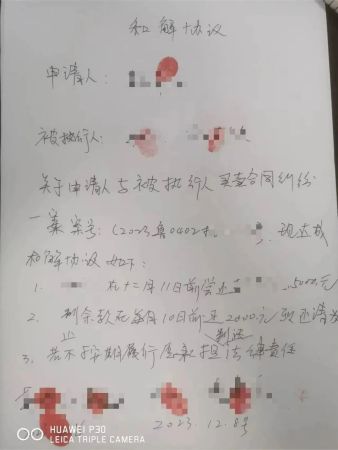 和解协议
申请人:
被执行人:
关于申请人与被执行人买卖合同纠纷
一案案号:(2023鲁0402执 ), 现达成
和解协议如下:
1. 在十二月11日前偿还 5000元
2. 剩余款在每月10日前还2000元 到还清为
止
3. 若不按期履行愿承担法律责任
2023.12.8号
HUAWEI P30
LEICA TRIPLE CAMERA